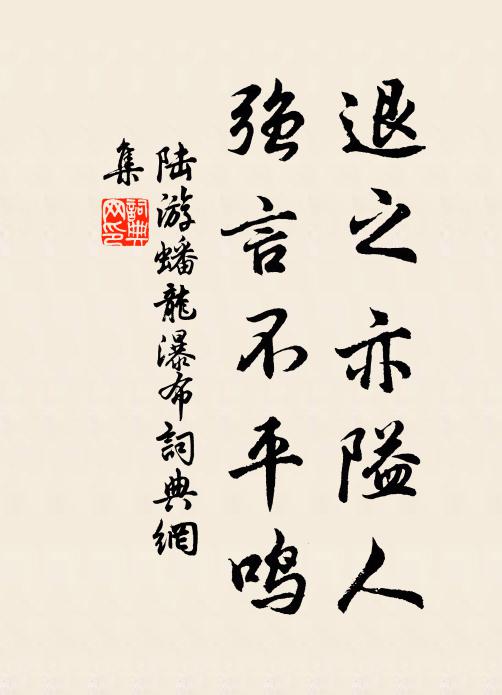 退之亦隘人
强言不平鸣
陆游蟠龍瀑布詞典網
集
詞典
网印